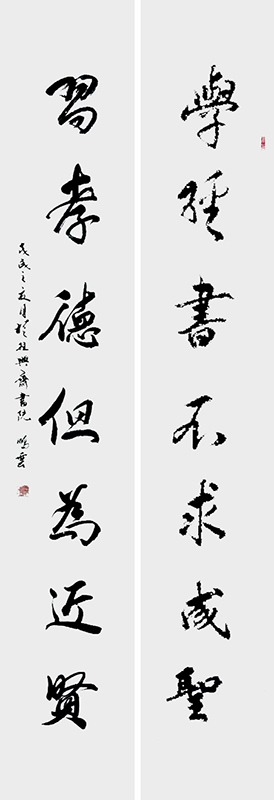 學經書不求成聖
習孝德但為近賢
戊戌之夏月於桂興齋書院 鳴雲